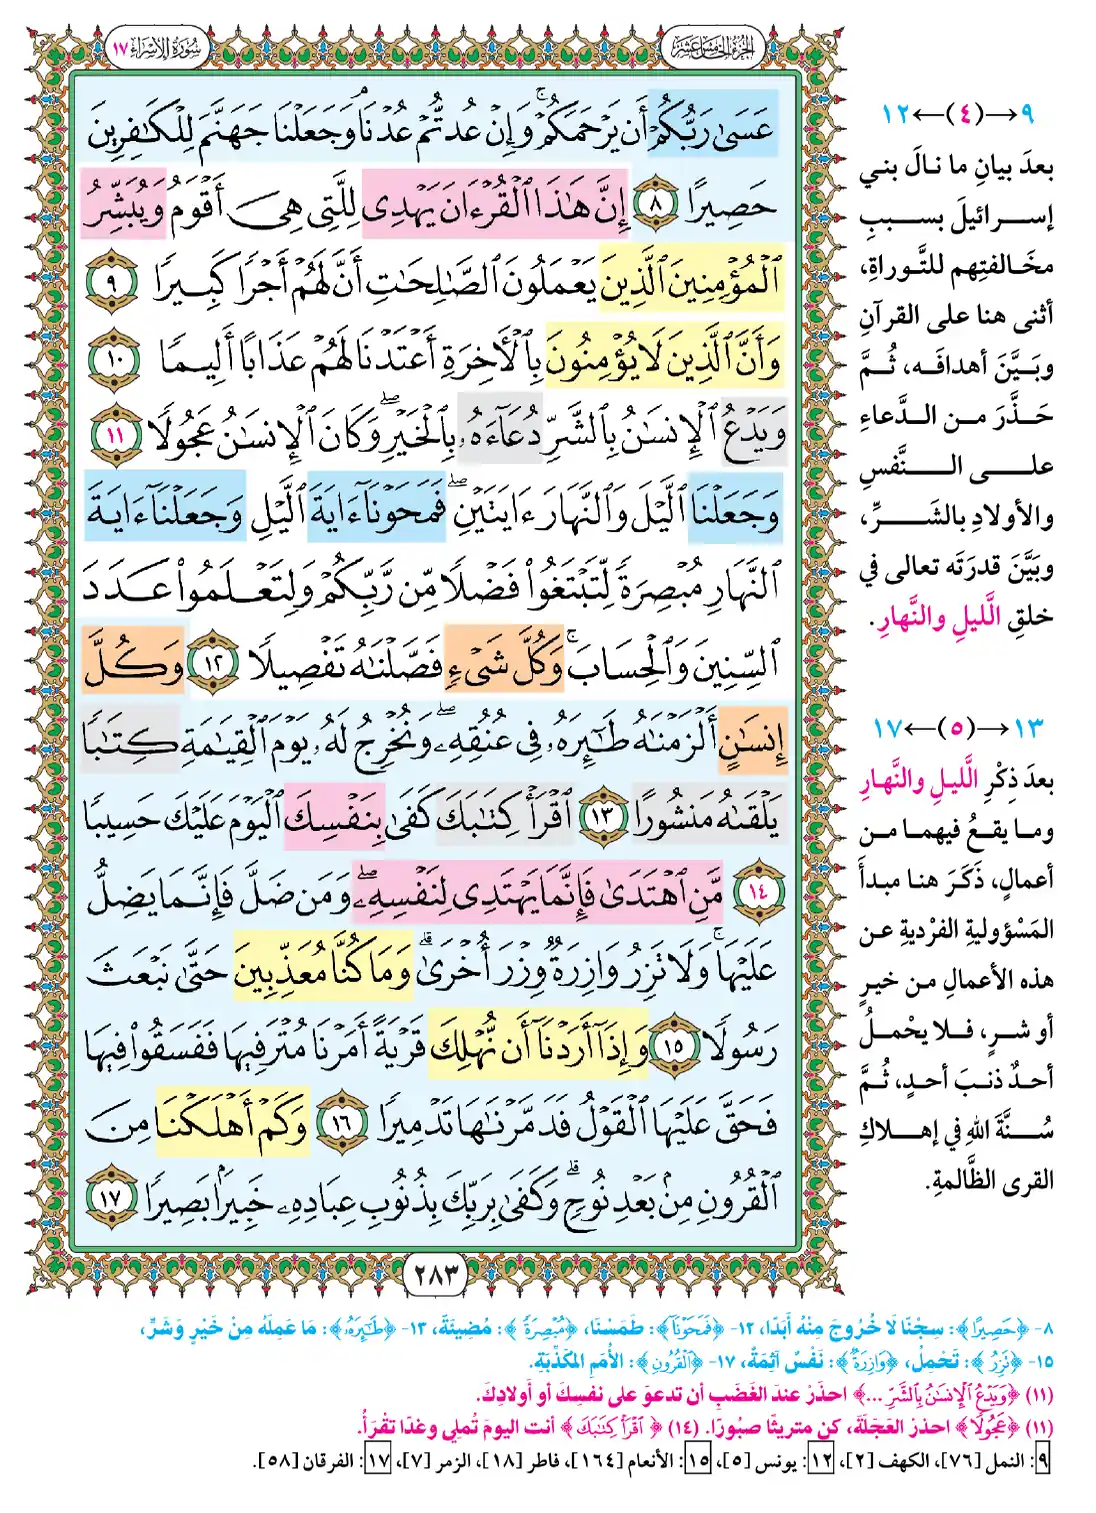 الجزء الخامس عشر
سورة الإسراء ١٧
عَسَىٰ رَبُّكُمْ أَن يَرْحَمَكُمْ ۚ وَإِنْ عُدتُّمْ عُدْنَا ۘ وَجَعَلْنَا جَهَنَّمَ لِلْكَـٰفِرِينَ
حَصِيرًا ٨ إِنَّ هَـٰذَا ٱلْقُرْءَانَ يَهْدِى لِلَّتِى هِىَ أَقْوَمُ وَيُبَشِّرُ
ٱلْمُؤْمِنِينَ ٱلَّذِينَ يَعْمَلُونَ ٱلصَّـٰلِحَـٰتِ أَنَّ لَهُمْ أَجْرًا كَبِيرًا ٩
وَأَنَّ ٱلَّذِينَ لَا يُؤْمِنُونَ بِٱلْـَٔاخِرَةِ أَعْتَدْنَا لَهُمْ عَذَابًا أَلِيمًا ١٠
وَيَدْعُ ٱلْإِنسَـٰنُ بِٱلشَّرِّ دُعَآءَهُۥ بِٱلْخَيْرِ ۖ وَكَانَ ٱلْإِنسَـٰنُ عَجُولًا ١١
وَجَعَلْنَا ٱلَّيْلَ وَٱلنَّهَارَ ءَايَتَيْنِ ۖ فَمَحَوْنَآ ءَايَةَ ٱلَّيْلِ وَجَعَلْنَآ ءَايَةَ
ٱلنَّهَارِ مُبْصِرَةً لِّتَبْتَغُوا۟ فَضْلًا مِّن رَّبِّكُمْ وَلِتَعْلَمُوا۟ عَدَدَ
ٱلسِّنِينَ وَٱلْحِسَابَ ۚ وَكُلَّ شَىْءٍ فَصَّلْنَـٰهُ تَفْصِيلًا ١٢ وَكُلَّ
إِنسَـٰنٍ أَلْزَمْنَـٰهُ طَـٰٓئِرَهُۥ فِى عُنُقِهِۦ ۖ وَنُخْرِجُ لَهُۥ يَوْمَ ٱلْقِيَـٰمَةِ كِتَـٰبًا
يَلْقَىٰهُ مَنشُورًا ١٣ ٱقْرَأْ كِتَـٰبَكَ كَفَىٰ بِنَفْسِكَ ٱلْيَوْمَ عَلَيْكَ حَسِيبًا
١٤ مَّنِ ٱهْتَدَىٰ فَإِنَّمَا يَهْتَدِى لِنَفْسِهِۦ ۖ وَمَن ضَلَّ فَإِنَّمَا يَضِلُّ
عَلَيْهَا ۚ وَلَا تَزِرُ وَازِرَةٌ وِزْرَ أُخْرَىٰ ۗ وَمَا كُنَّا مُعَذِّبِينَ حَتَّىٰ نَبْعَثَ
رَسُولًا ١٥ وَإِذَآ أَرَدْنَآ أَن نُّهْلِكَ قَرْيَةً أَمَرْنَا مُتْرَفِيهَا فَفَسَقُوا۟ فِيهَا
فَحَقَّ عَلَيْهَا ٱلْقَوْلُ فَدَمَّرْنَـٰهَا تَدْمِيرًا ١٦ وَكَمْ أَهْلَكْنَا مِنَ
ٱلْقُرُونِ مِنۢ بَعْدِ نُوحٍ ۗ وَكَفَىٰ بِرَبِّكَ بِذُنُوبِ عِبَادِهِۦ خَبِيرًۢا بَصِيرًا ١٧
٢٨٣
٩→(٤)←١٢
بعدَ بيانِ ما نالَ بني
إسرائيلَ بسببِ
مخالفتِهم للتَّوراةِ،
أثنى هنا على القرآنِ
وبَيَّنَ أهدافَه، ثُمَّ
حَذَّرَ من الدَّعاءِ
على النَّفسِ
والأولادِ بالشَّرِّ،
وبَيَّنَ قدرَتَه تعالى في
خلقِ الَّليلِ والنَّهارِ.
١٣→(٥)←١٧
بعدَ ذِكْرِ الَّليلِ والنَّهارِ
وما يقعُ فيهما من
أعمالٍ، ذَكَرَ هنا مبدأَ
المَسْؤوليةِ الفرْديةِ عن
هذه الأعمالِ من خيرٍ
أو شرٍ، فلا يحْملُ
أحدٌ ذنبَ أحدٍ، ثُمَّ
سُنَّةَ اللهِ في إهلاكِ
القرى الظَّالمةِ.
٨- ﴿حَصِيرًا﴾: سِجْنًا لَا خُرُوجَ مِنْهُ أَبَدًا، ١٢- ﴿فَمَحَوْنَآ﴾: طَمَسْنَا، ﴿مُبْصِرَةً﴾: مُضِيئَةً، ١٣- ﴿طَـٰٓئِرَهُۥ﴾: مَا عَمِلَهُ مِنْ خَيْرٍ وَشَرٍّ،
١٥- ﴿تَزِرُ﴾: تَحْمِلُ، ﴿وَازِرَةٌ﴾: نَفْسٌ آثِمَةٌ، ١٧- ﴿ٱلْقُرُونِ﴾: الأُمَمِ المُكَذِّبَةِ.
(١١) ﴿وَيَدْعُ ٱلْإِنسَـٰنُ بِٱلشَّرِّ ...﴾ احذَرْ عندَ الغَضَبِ أن تدعوَ على نفسِكَ أو أولادِكَ.
(١١) ﴿عَجُولًا﴾ احذر العَجَلَةَ، كن متريثًا صبُورًا. (١٤) ﴿ٱقْرَأْ كِتَـٰبَكَ﴾ أنت اليومَ تُملِي وغدًا تقْرَأُ.
٩: النمل [٧٦]، الكهف [٢]، ١٢: يونس [٥]، ١٥: الأنعام [١٦٤]، فاطر [١٨]، الزمر [٧]، ١٧: الفرقان [٥٨].